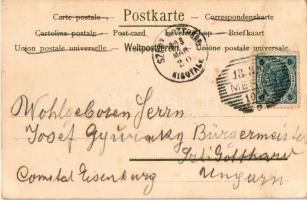 Postkarte
Carte postale — Correspondenzkarte
Cartolina postale — Post-card — Levelező-Lap — Briefkaart
Union postale universelle — Weltpostverein — Unione postale universale
Wohlgeboren Herrn
Josef Gyurisky Bürgermeister
Szt. Gotthard
Comitat Eisenburg Ungarn